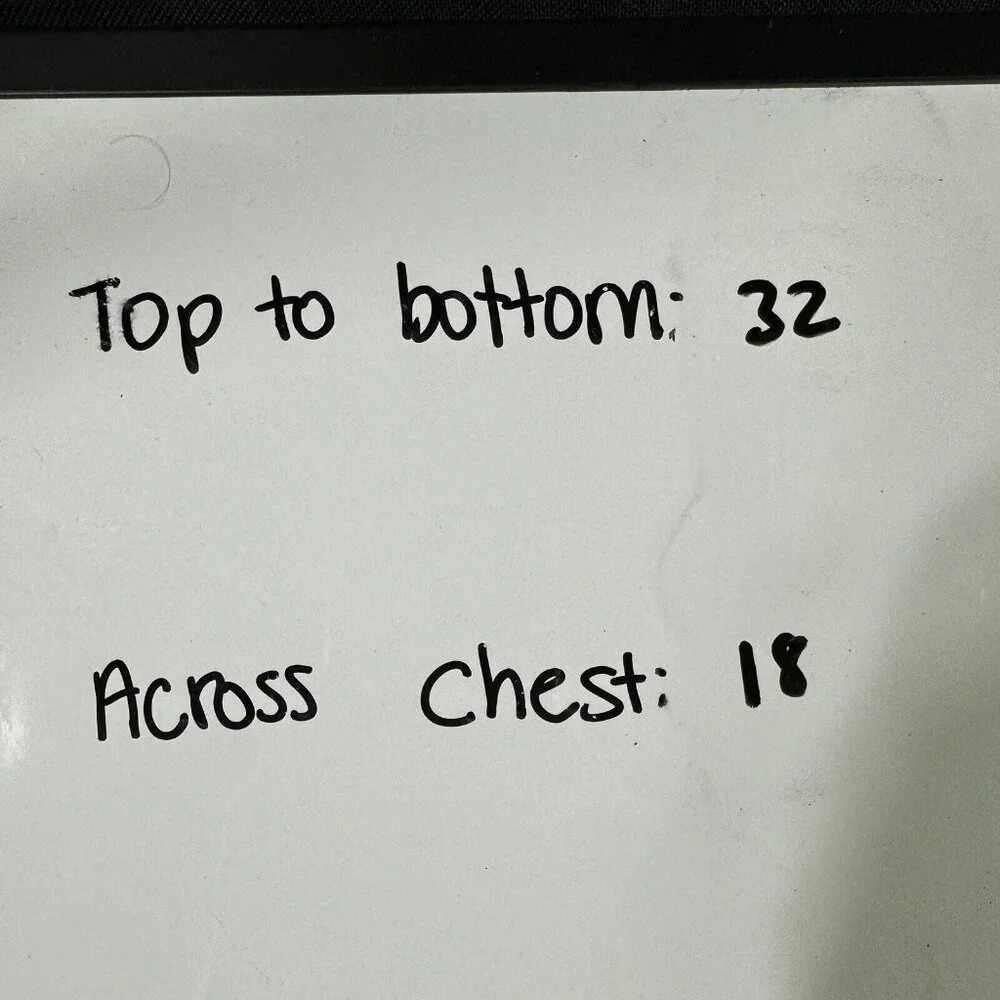 Top to bottom: 32
Across Chest: 18